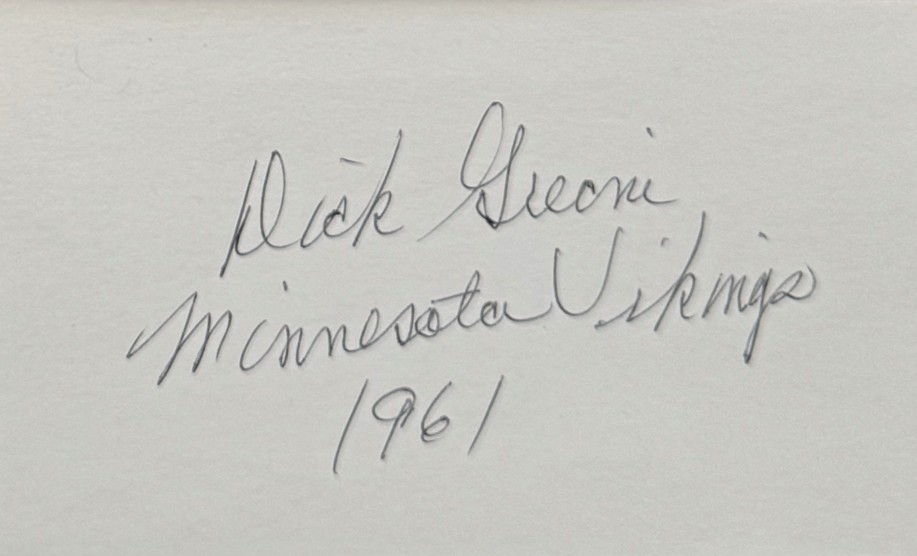 Dick Grecni
Minnesota Vikings
1961